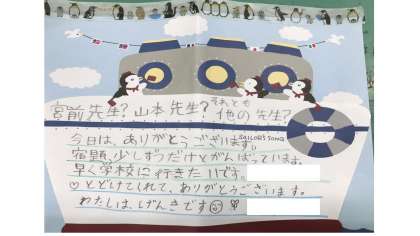 宮前先生?山本先生?それとも他の先生?
SAILOR'S SONG
今日は、ありがとうございます。
宿題、少しずつだけどがんばっています。
早く学校に行きたいです。
♡とどけてくれて、ありがとうございます。
わたしは、げんきです☺